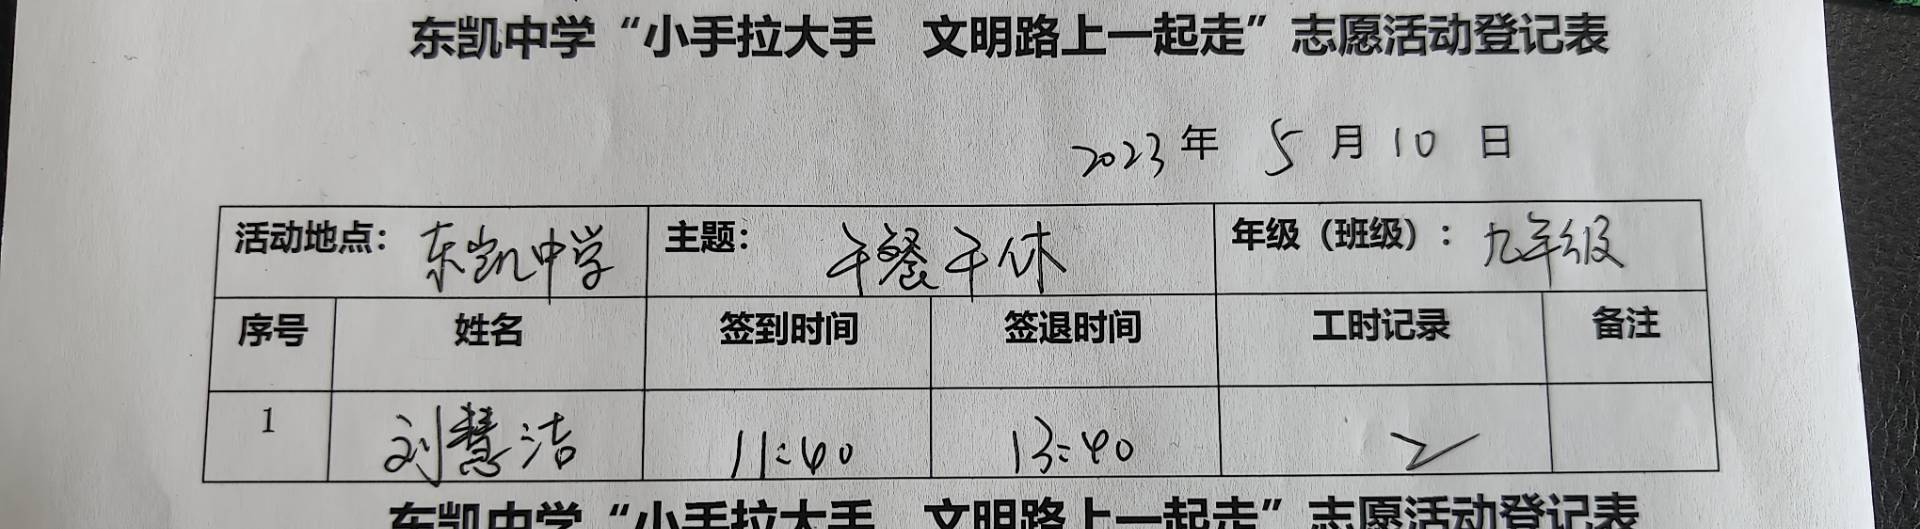 东凯中学“小手拉大手 文明路上一起走”志愿活动登记表
2023年 5月10日
活动地点：东凯中学 主题：午餐午休 年级（班级）：九年级
序号 姓名 签到时间 签退时间 工时记录 备注
1 刘慧洁 11:40 13:40 2
东凯中学“小手拉大手 文明路上一起走”志愿活动登记表